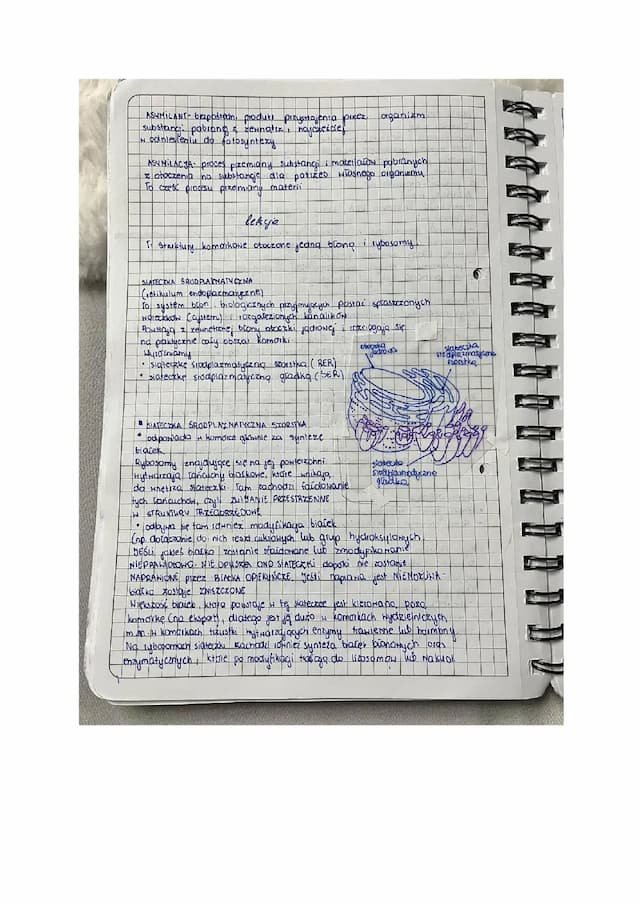 ASYMILANT- bezpośredni produkt przyswojenia przez organizm
substancji pobranej z zewnątrz, najczęściej
w odniesieniu do fotosyntezy
ASYMILACJA- proces przemiany substancji i materiałów pobranych
z otoczenia na substancje dla potrzeb własnego organizmu
To część procesu przemiany materii
lekcja
T: Struktury komórkowe otoczone jedną błoną i rybosomy.
SIATECZKA ŚRÓDPLAZMATYCZNA
(retikulum endoplazmatyczne)
To system błon biologicznych przyjmujących postać spłaszczonych
woreczków (cystern) i rozgałęzionych kanalików
Powstają z zewnętrznej błony otoczki jądrowej i rozciągają się
na praktycznie cały obszar komórki
Wyróżniamy
• siateczkę śródplazmatyczną szorstką (RER)
• siateczkę śródplazmatyczną gładką (SER)
otoczka
jądrowa
siateczka
śródplazmatyczna
szorstka
siateczka
śródplazmatyczna
gładka
• SIATECZKA ŚRÓDPLAZMATYCZNA SZORSTKA
• odpowiada w komórce głównie za syntezę
białek
Rybosomy znajdujące się na jej powierzchni
wytwarzają łańcuchy białkowe, które wnikają
do wnętrza siateczki. Tam zachodzi fałdowanie
tych łańcuchów, czyli ZWIJANIE PRZESTRZENNE
W STRUKTURY TRZECIORZĘDOWE
• odbywa się tam również modyfikacja białek
(np. dołączanie do nich reszt cukrowych lub grup hydroksylowych)
JEŚLI jakieś białko zostanie sfałdowane lub zmodyfikowane
NIEPRAWIDŁOWO- NIE OPUSZCZA ONO SIATECZKI dopóki nie zostanie
NAPRAWIONE przez BIAŁKA OPIEKUŃCZE. Jeśli naprawa jest NIEMOŻLIWA-
białko zostaje ZNISZCZONE
Większość białek, która powstaje w tej siateczce jest kierowana poza
komórkę (na eksport), dlatego jest ją dużo w komórkach wydzielniczych
m.in. w komórkach trzustki wytwarzających enzymy trawienne lub hormony.
Na rybosomach siateczki zachodzi również synteza białek błonowych oraz
enzymatycznych, które po modyfikacji trafiają do lizosomów lub wakuol